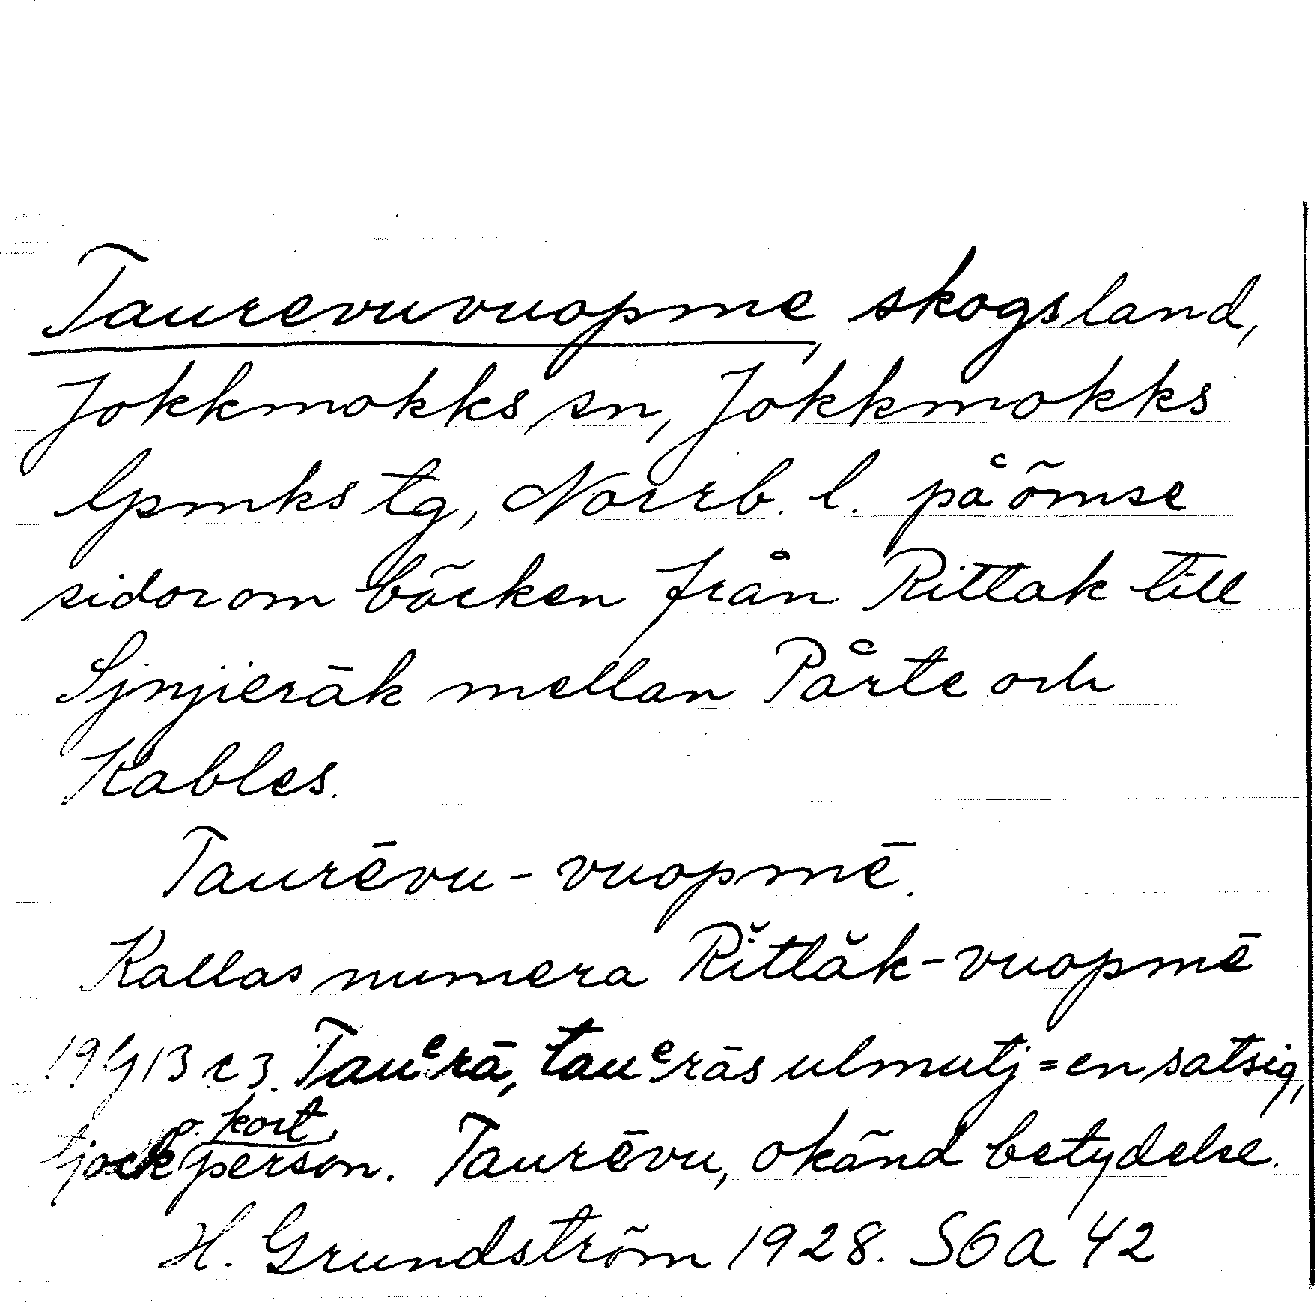 Taurevuvuopme, skogsland,
Jokkmokks sn, Jokkmokks
lpmks tg, Norrb. l. på ömse
sidor om bäcken från Ritlak till
Sjnjieråk mellan Pårte och
Kables.
Taurēvu-vuopmē.
Kallas numera Rĭtlăk-vuopmē
19G13 c3. Tauᵉrā, tauᵉrās ulmutj = en satsig,
o. kort
tjock person. Taurēvu, okänd betydelse.
H. Grundström 1928. SOA 42